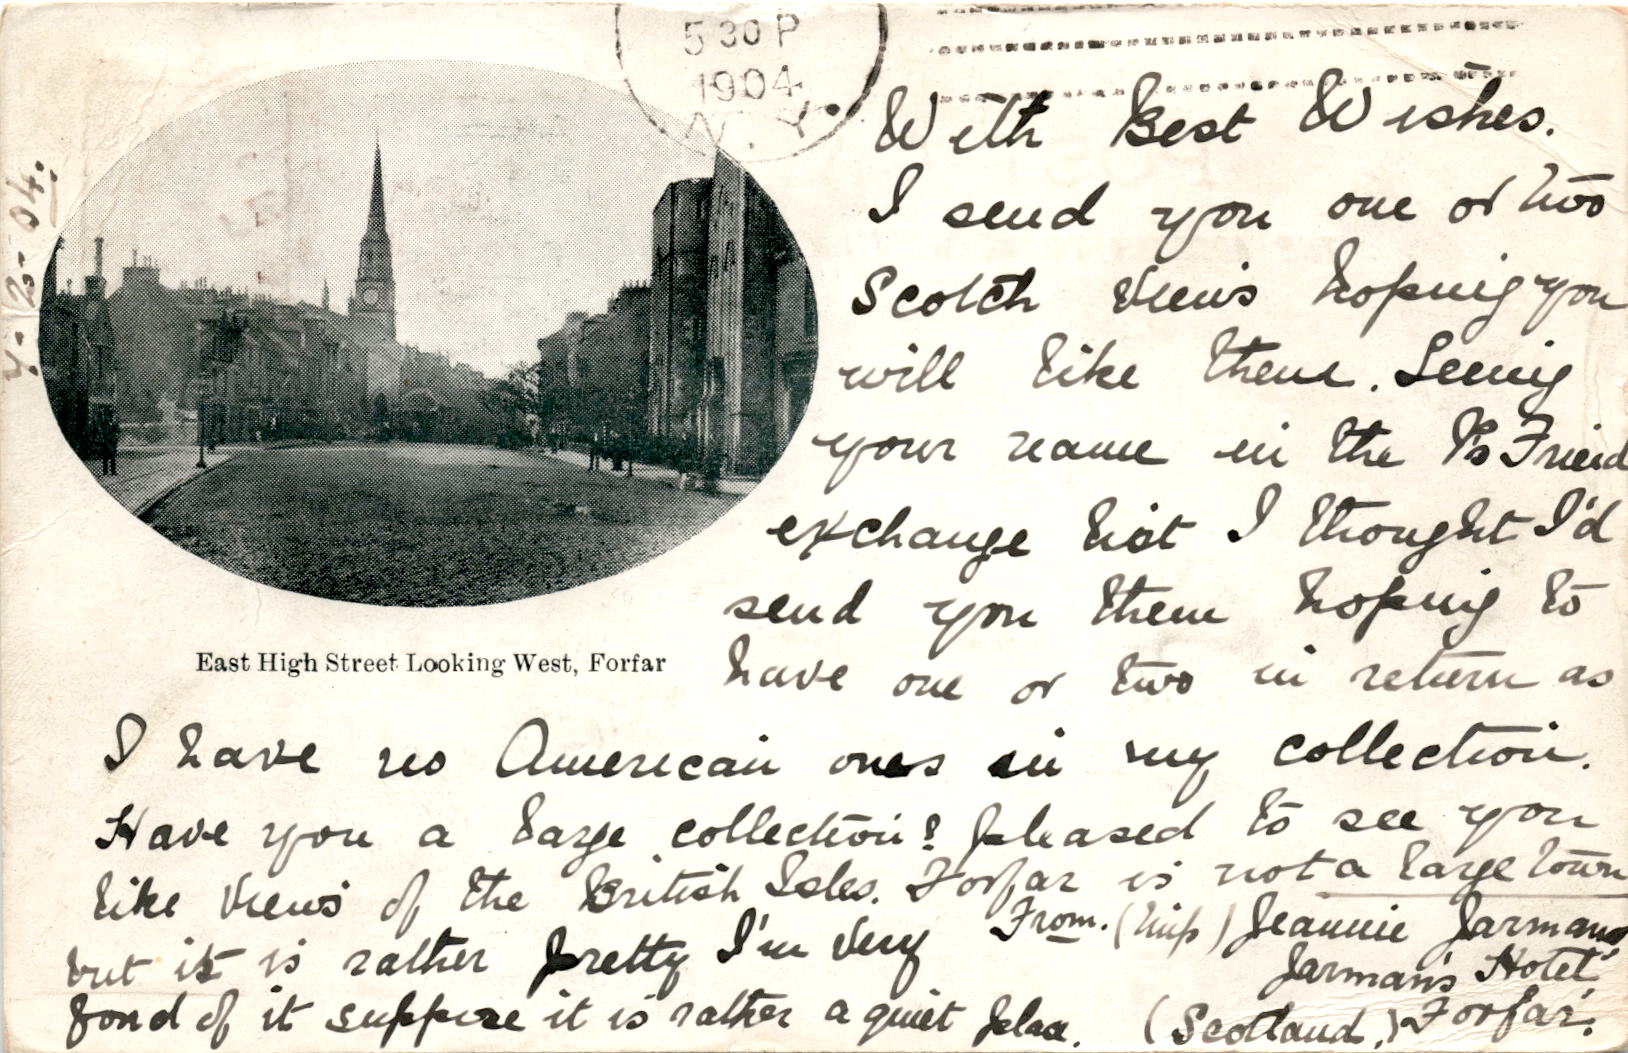 5 30 P
1904
N.Y.
4-2-04.
With Best Wishes.
I send you one or two
Scotch views hoping you
will like them. Seeing
your name in the P's Friend
exchange list I thought I'd
send you them hoping to
have one or two in return as
East High Street Looking West, Forfar
I have no American ones in my collection.
Have you a large collection? pleased to see you
like views of the British Isles. Forfar is not a large town
but it is rather pretty I'm very
fond of it suppose it is rather a quiet place.
From. (Miss) Jeannie Jarman
Jarman's Hotel,
(Scotland.) Forfar.